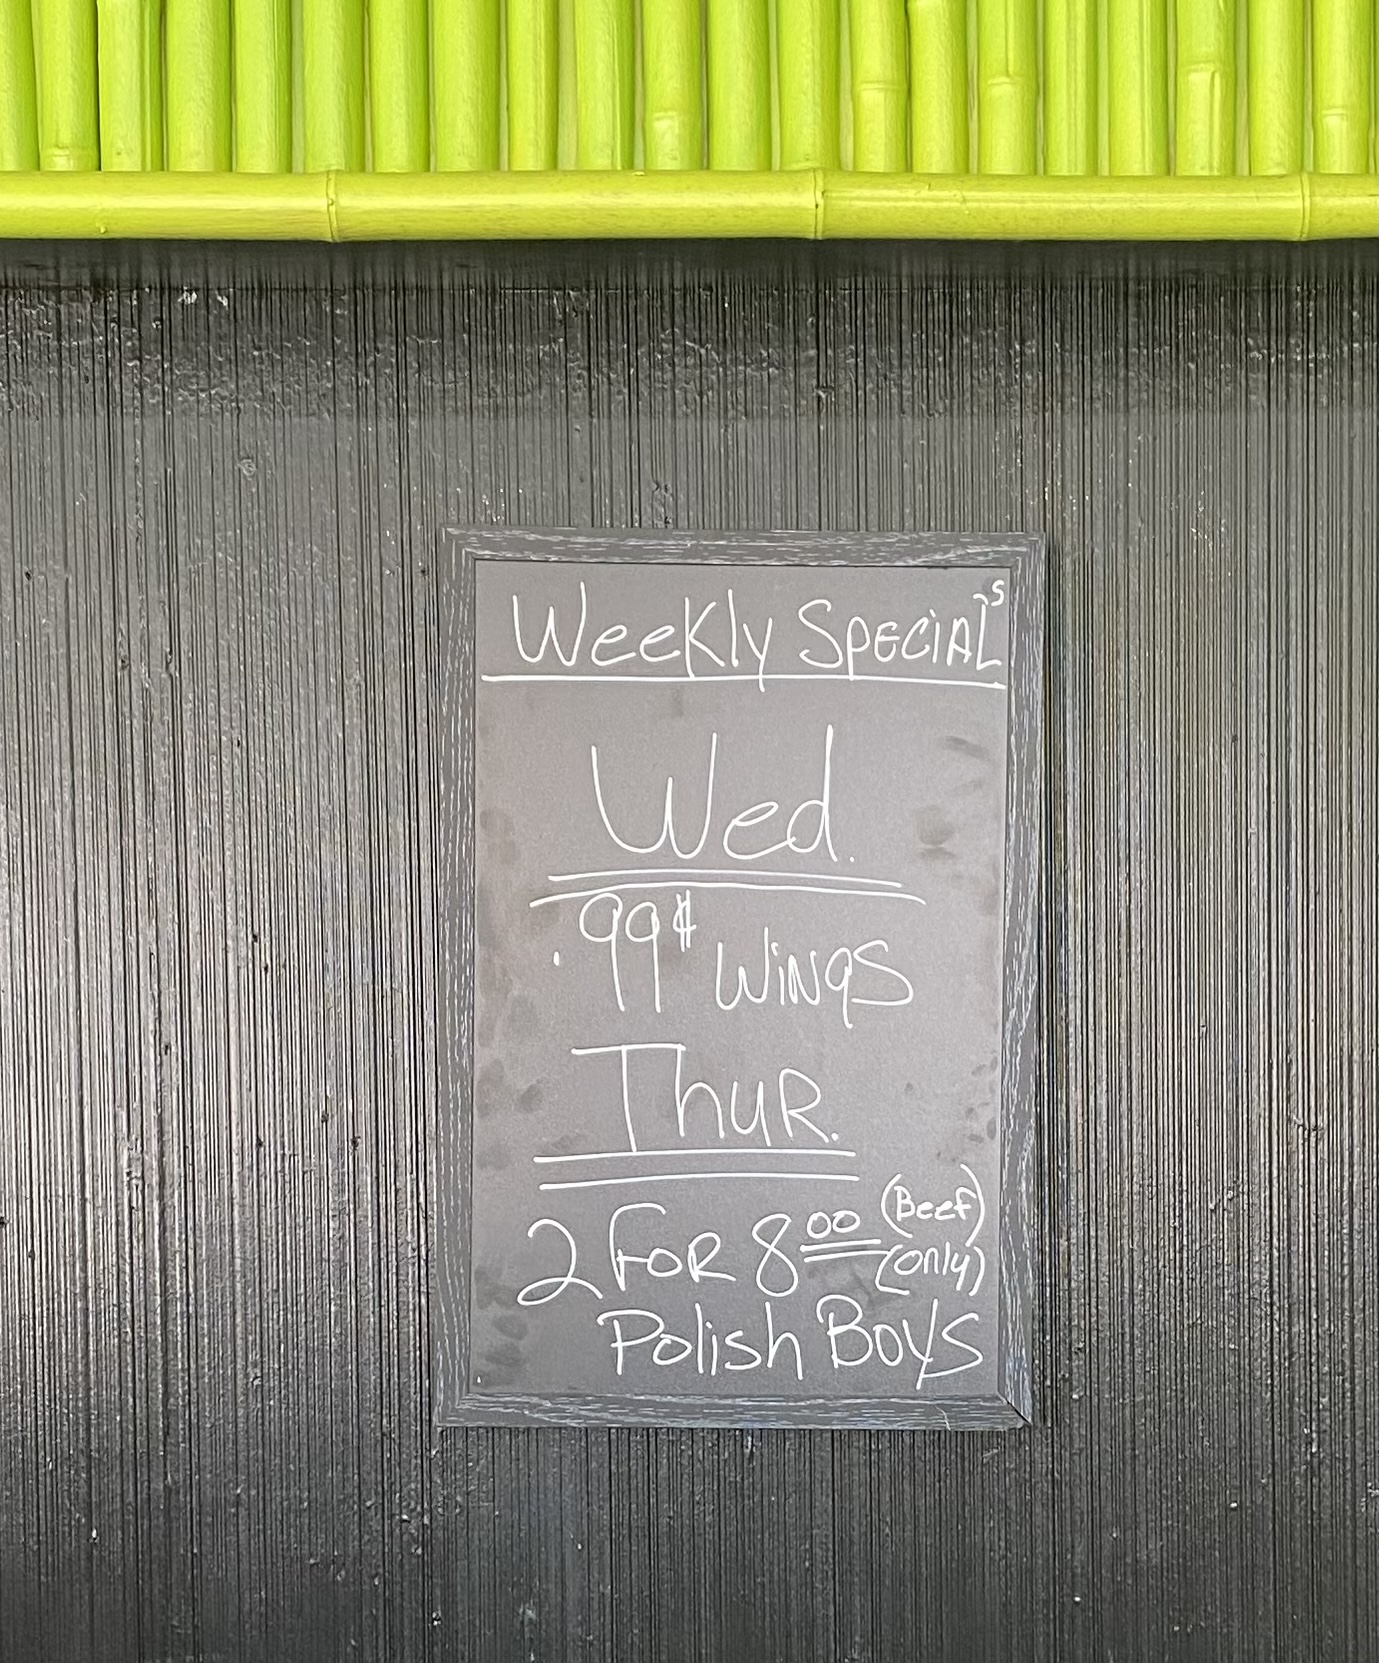 Weekly Specials
Wed.
.99¢ Wings
Thur.
2 For 8.00 (Beef)
(only)
Polish Boys